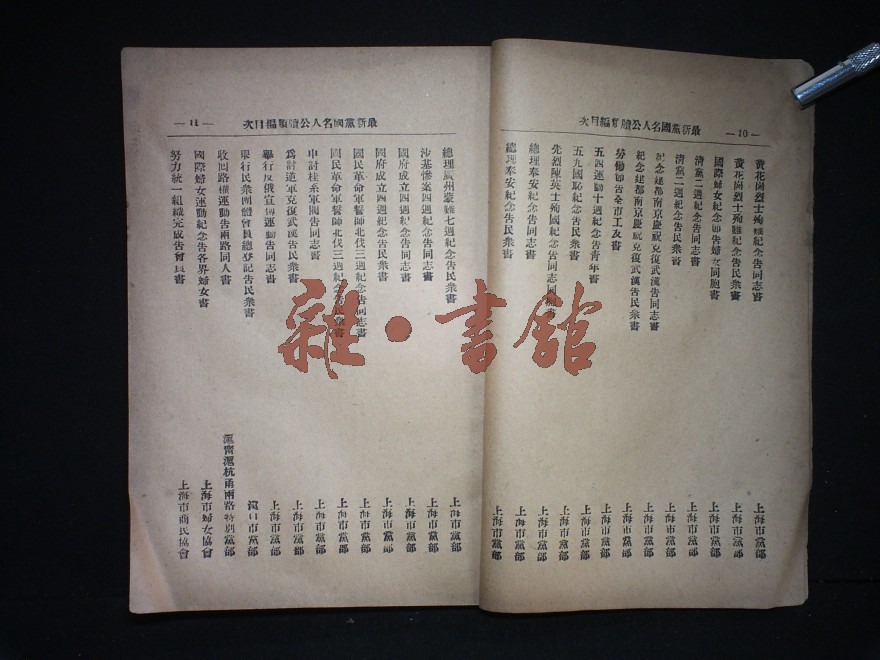 最新黨國名人公牘類編目次
— 10 —
黃花崗烈士殉難紀念告同志書 上海市黨部
黃花崗烈士殉難紀念告民衆書 上海市黨部
國際婦女紀念節告婦女同胞書 上海市黨部
清黨二週紀念告同志書 上海市黨部
清黨二週紀念告民衆書 上海市黨部
紀念建都南京慶祝克復武漢告同志書 上海市黨部
紀念建都南京慶祝克復武漢告民衆書 上海市黨部
勞働節告全市工友書 上海市黨部
五四運動十週紀念告青年書 上海市黨部
五九國恥紀念告民衆書 上海市黨部
先烈陳英士殉國紀念告同志同胞書 上海市黨部
總理奉安紀念告同志書 上海市黨部
總理奉安紀念告民衆書 上海市黨部
最新黨國名人公牘類編目次
— 11 —
總理廣州蒙難七週紀念告民衆書 上海市黨部
沙基慘案四週紀念告同志書 上海市黨部
國府成立四週紀念告同志書 上海市黨部
國府成立四週紀念告民衆書 上海市黨部
國民革命軍誓師北伐三週紀念告同志書 上海市黨部
國民革命軍誓師北伐三週紀念告民衆書 上海市黨部
申討桂系軍閥告同志書 上海市黨部
為討逆軍克復武漢告民衆書 上海市黨部
舉行反俄宣傳運動告同志書 上海市黨部
舉行民衆團體會員總登記告民衆書 漢口市黨部
收回路權運動告兩路同人書 滬甯滬杭甬兩路特別黨部
國際婦女運動紀念告各界婦女書 上海市婦女協會
努力統一組織完成告會員書 上海市商民協會
雜·書館